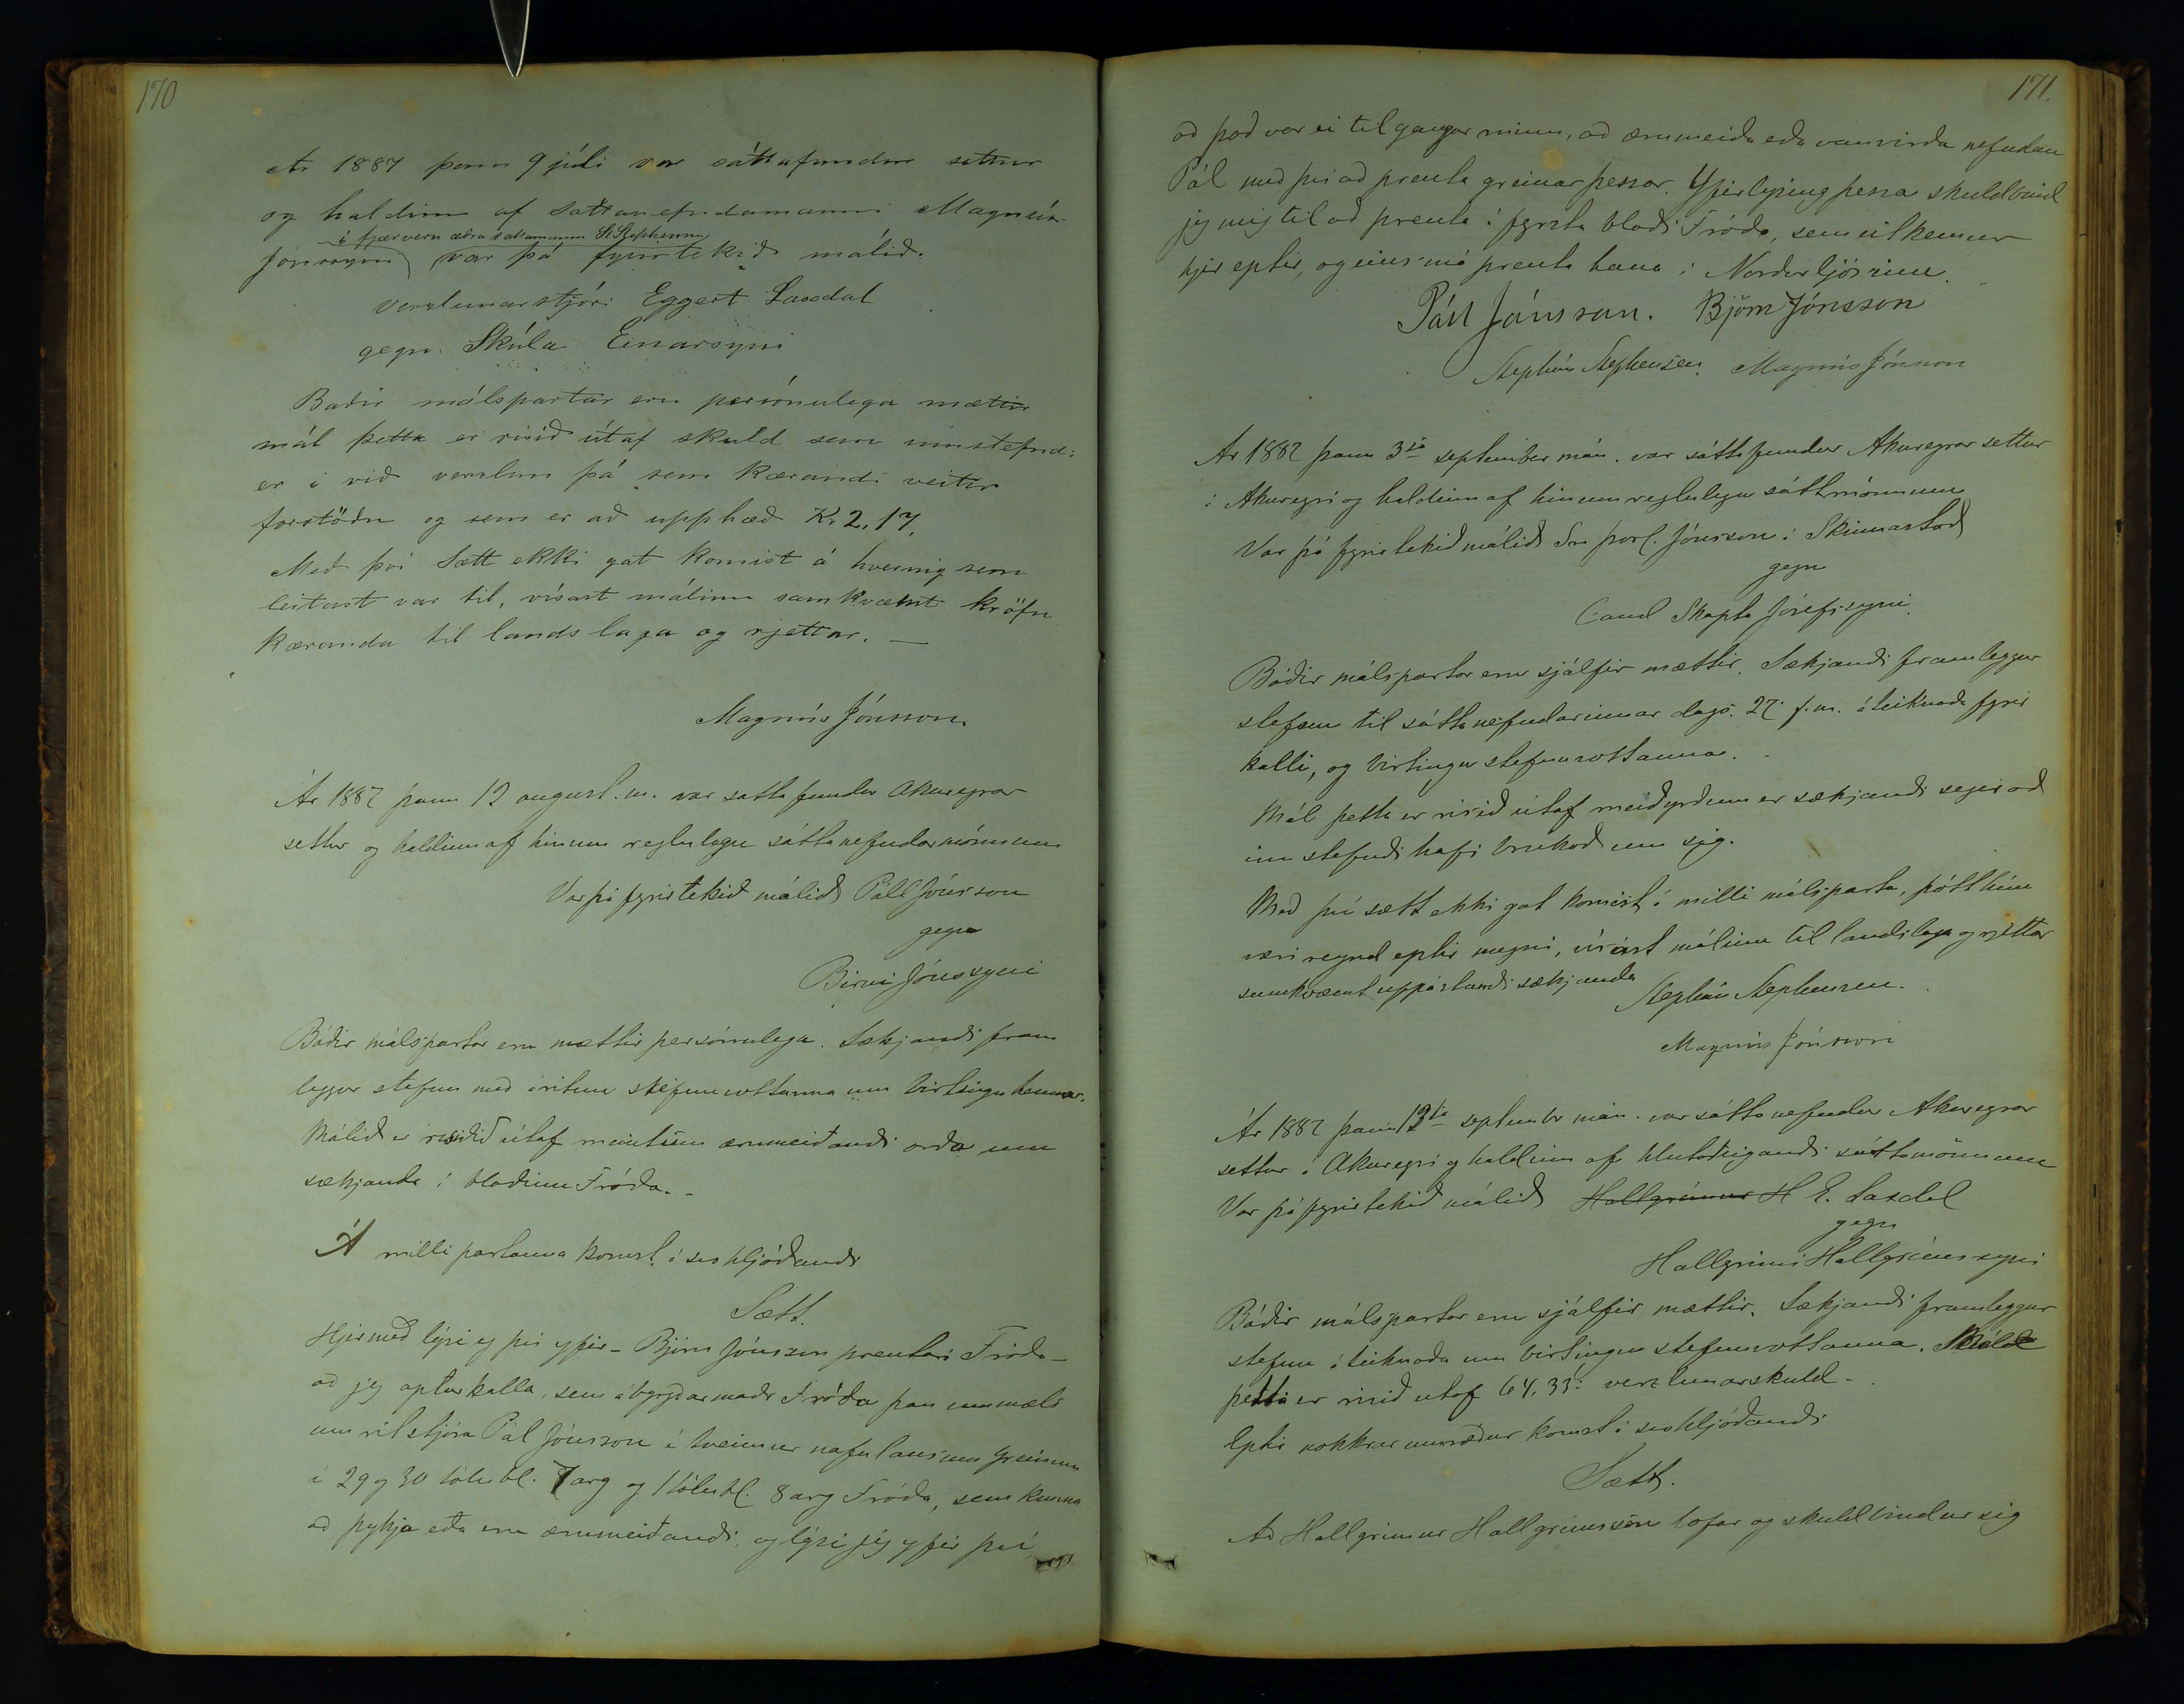 170
Ár 1887 þann 9 júli var sáttafundur settur
og haldinn af sáttanefndamanni Magnúsi
í fjærveru æðra sáttamanns St. Stephensen
Jónssyni var þá fyrirtekið málið.
verzlunarstjóri Eggert Laxdal
gegn. Skúla Einarsyni
Baðir málspartar eru persónulega mættir
mál þetta er risið útaf skuld sem innstefndi
er í við verzlun þá sem kærandi veitir
forstöðu og sem er að upphæð Kr 2,17.
Með því Sætt ekki gat komist á hvernig sem
leitast var til, vísast málinu samkvæmt kröfu
kæranda til landslaga og rjettar. —
Magnús Jónsson.
Ár 1887 þann 12 august.m. var satta fundur Akureyrar
settur og haldinn af hinum reglulegu sáttanefndarmönnum
Var þá fyrirtekið málið Páll Jónsson
gegn
Birni Jónssyni
Báðir málspartar eru mættir persónulega. Sækjandi fram
leggur stefnu með áritun stefnuvottanna um birtingu hennar.
Málið er risið útaf meintum ærumeiðandi orðum um
sækjanda í blaðinu Fróða. -
Á milli partanna komst á svo hljóðandi
Sætt.
Hjermeð lýsi eg því yfir - Björn Jónsson prentari Fróða -
að jeg apturkalla, sem ábyrgðarmaðr Fróða þau ummæli
um ritstjóra Pál Jónsson í tveimur nafnlausum greinum
í 29 og 30 tölubl. 7 árg og 1 tölubl. 8 árg Fróða, sem kunna
að þykja eða eru ærumeiðandi, og lýsi jeg yfir því
171.
að það var ei tilgangur minn, að ærumeiða eða vanvirða nefndan
Pál með því að prenta greinar þessar. Yfirlýsing þessa skuldbind
jeg mig til að prenta í fyrsta blaði Fróða, sem út kemur
hjer eptir, og eins má prenta hana í Norðurljósinu.
Páll Jónsson. Björn Jónsson
Stephán Stephensen. Magnús Jónsson
Ár 1887 þann 3ja september mán. var sáttafundur Akureyrar settur
í Akureyri og haldinn af hinum reglulegu sáttmönnum
Var þá fyrirtekið málið Sra Þorl. Jónsson í Skinnastað
gegn
Cand Skapta Jósefssyni.
Báðir málspartar eru sjálfir mættir. Sækjandi framleggur
stefnu til sáttanefndarinnar dags. 27. f.m. áteiknaða fyrir
kalli, og birtingu stefnuvottanna.
Mál þetta er risið útaf meiðyrðum er sækjandi segir að
inn stefndi hafi brukað um sig.
Með því sætt ekki gat komist á milli málsparta, þótt hún
væri reynd eptir megni, vísast málinu til landslaga og rjettar
samkvæmt uppástandi sækjanda
Stephán Stephensen.
Magnús Jónsson
Ár 1887 þann 12ta septembr mán. var sáttanefndur Akureyrar
settur í Akureyri og haldinn af hlutaðeigandi sáttamönnum
Var þá fyrirtekið málið Hallgrímur H E. Laxdal
gegn
Hallgrími Hallgrímssyni
Báðir málspartar eru sjálfir mættir. Sækjandi framleggur
stefnu áteiknaða um birtingu stefnuvottanna. Mál
þetta er risið útaf 64,33 a verzlunarskuld.
Eptir nokkrar umræður komst á svohljóðandi
Sætt.
Að Hallgrímur Hallgrímsson lofar og skuldbindur sig